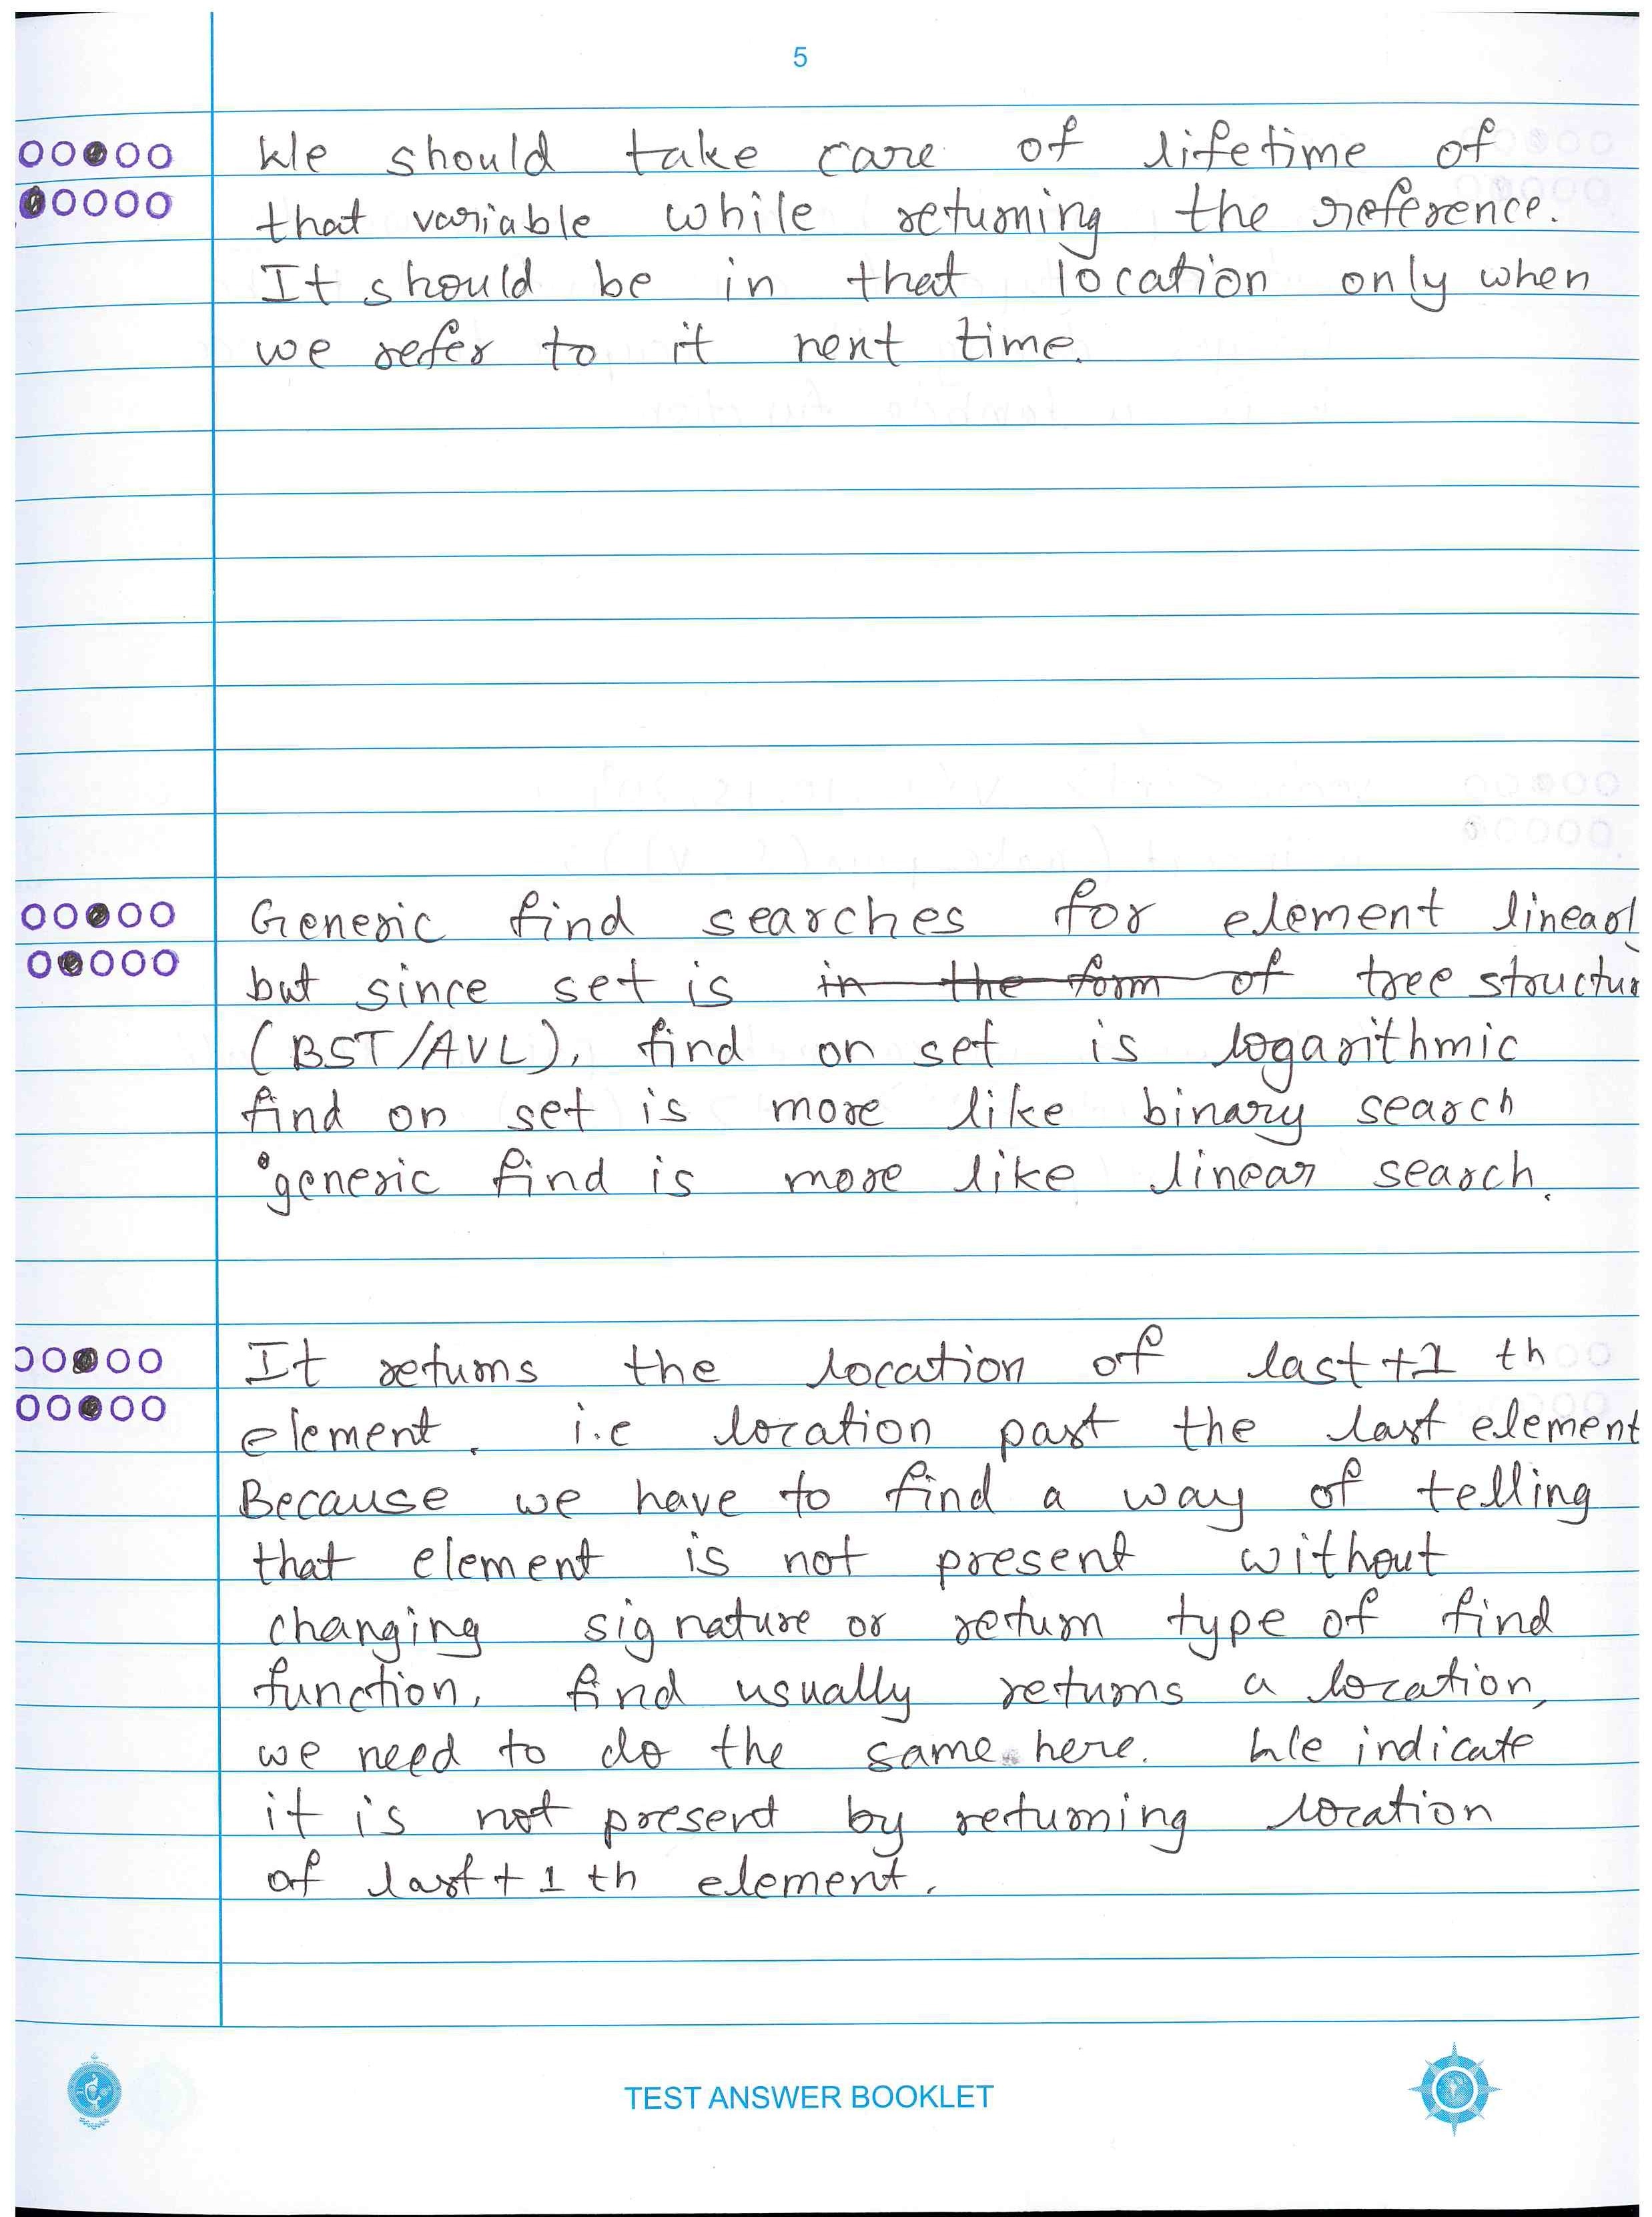 5
We should take care of lifetime of
that variable while returning the reference.
It should be in that location only when
we refer to it next time.
Generic find searches for element linearl
but since set is in the form of tree structur
(BST/AVL), find on set is logarithmic
find on set is more like binary search
generic find is more like linear search.
It returns the location of last+1 th
element. i.e location past the last element
Because we have to find a way of telling
that element is not present without
changing signature or return type of find
function. find usually returns a location,
we need to do the same here. We indicate
it is not present by returning location
of last+1 th element.
TEST ANSWER BOOKLET